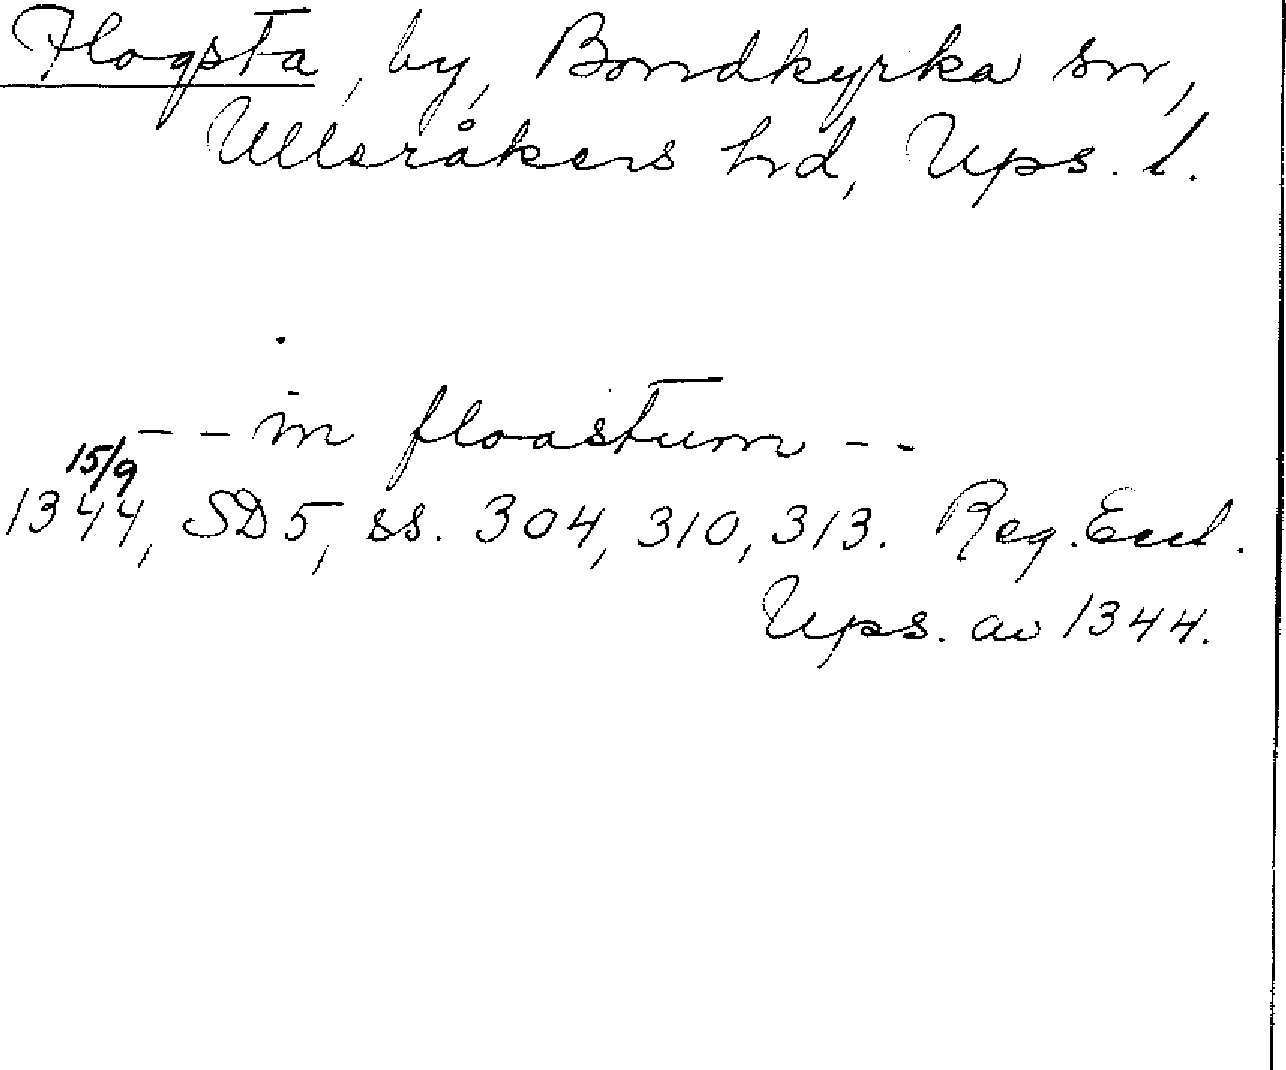 Flogsta, by, Bondkyrka sn,
Ulleråkers hd, Ups. l.
- - in floastum - -
15/9
1344, SD 5, ss. 304, 310, 313. Reg. Eccl.
Ups. av 1344.